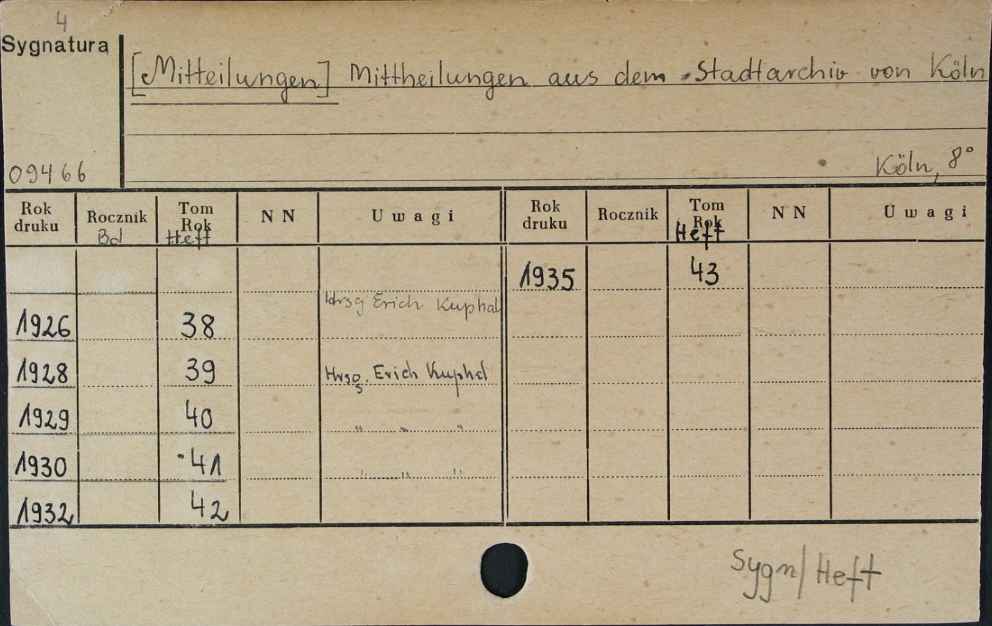 4
Sygnatura
[Mitteilungen] Mittheilungen aus dem Stadtarchiv von Köln
09466
Köln, 8°
Rok druku Rocznik Bd Tom Rok Heft NN Uwagi Rok druku Rocznik Tom Rok Heft NN Uwagi
1935 43
Hrsg Erich Kuphal
1926 38
1928 39 Hrsg. Erich Kuphal
1929 40 " " "
1930 41 " " "
1932 42
Sygn/Heft